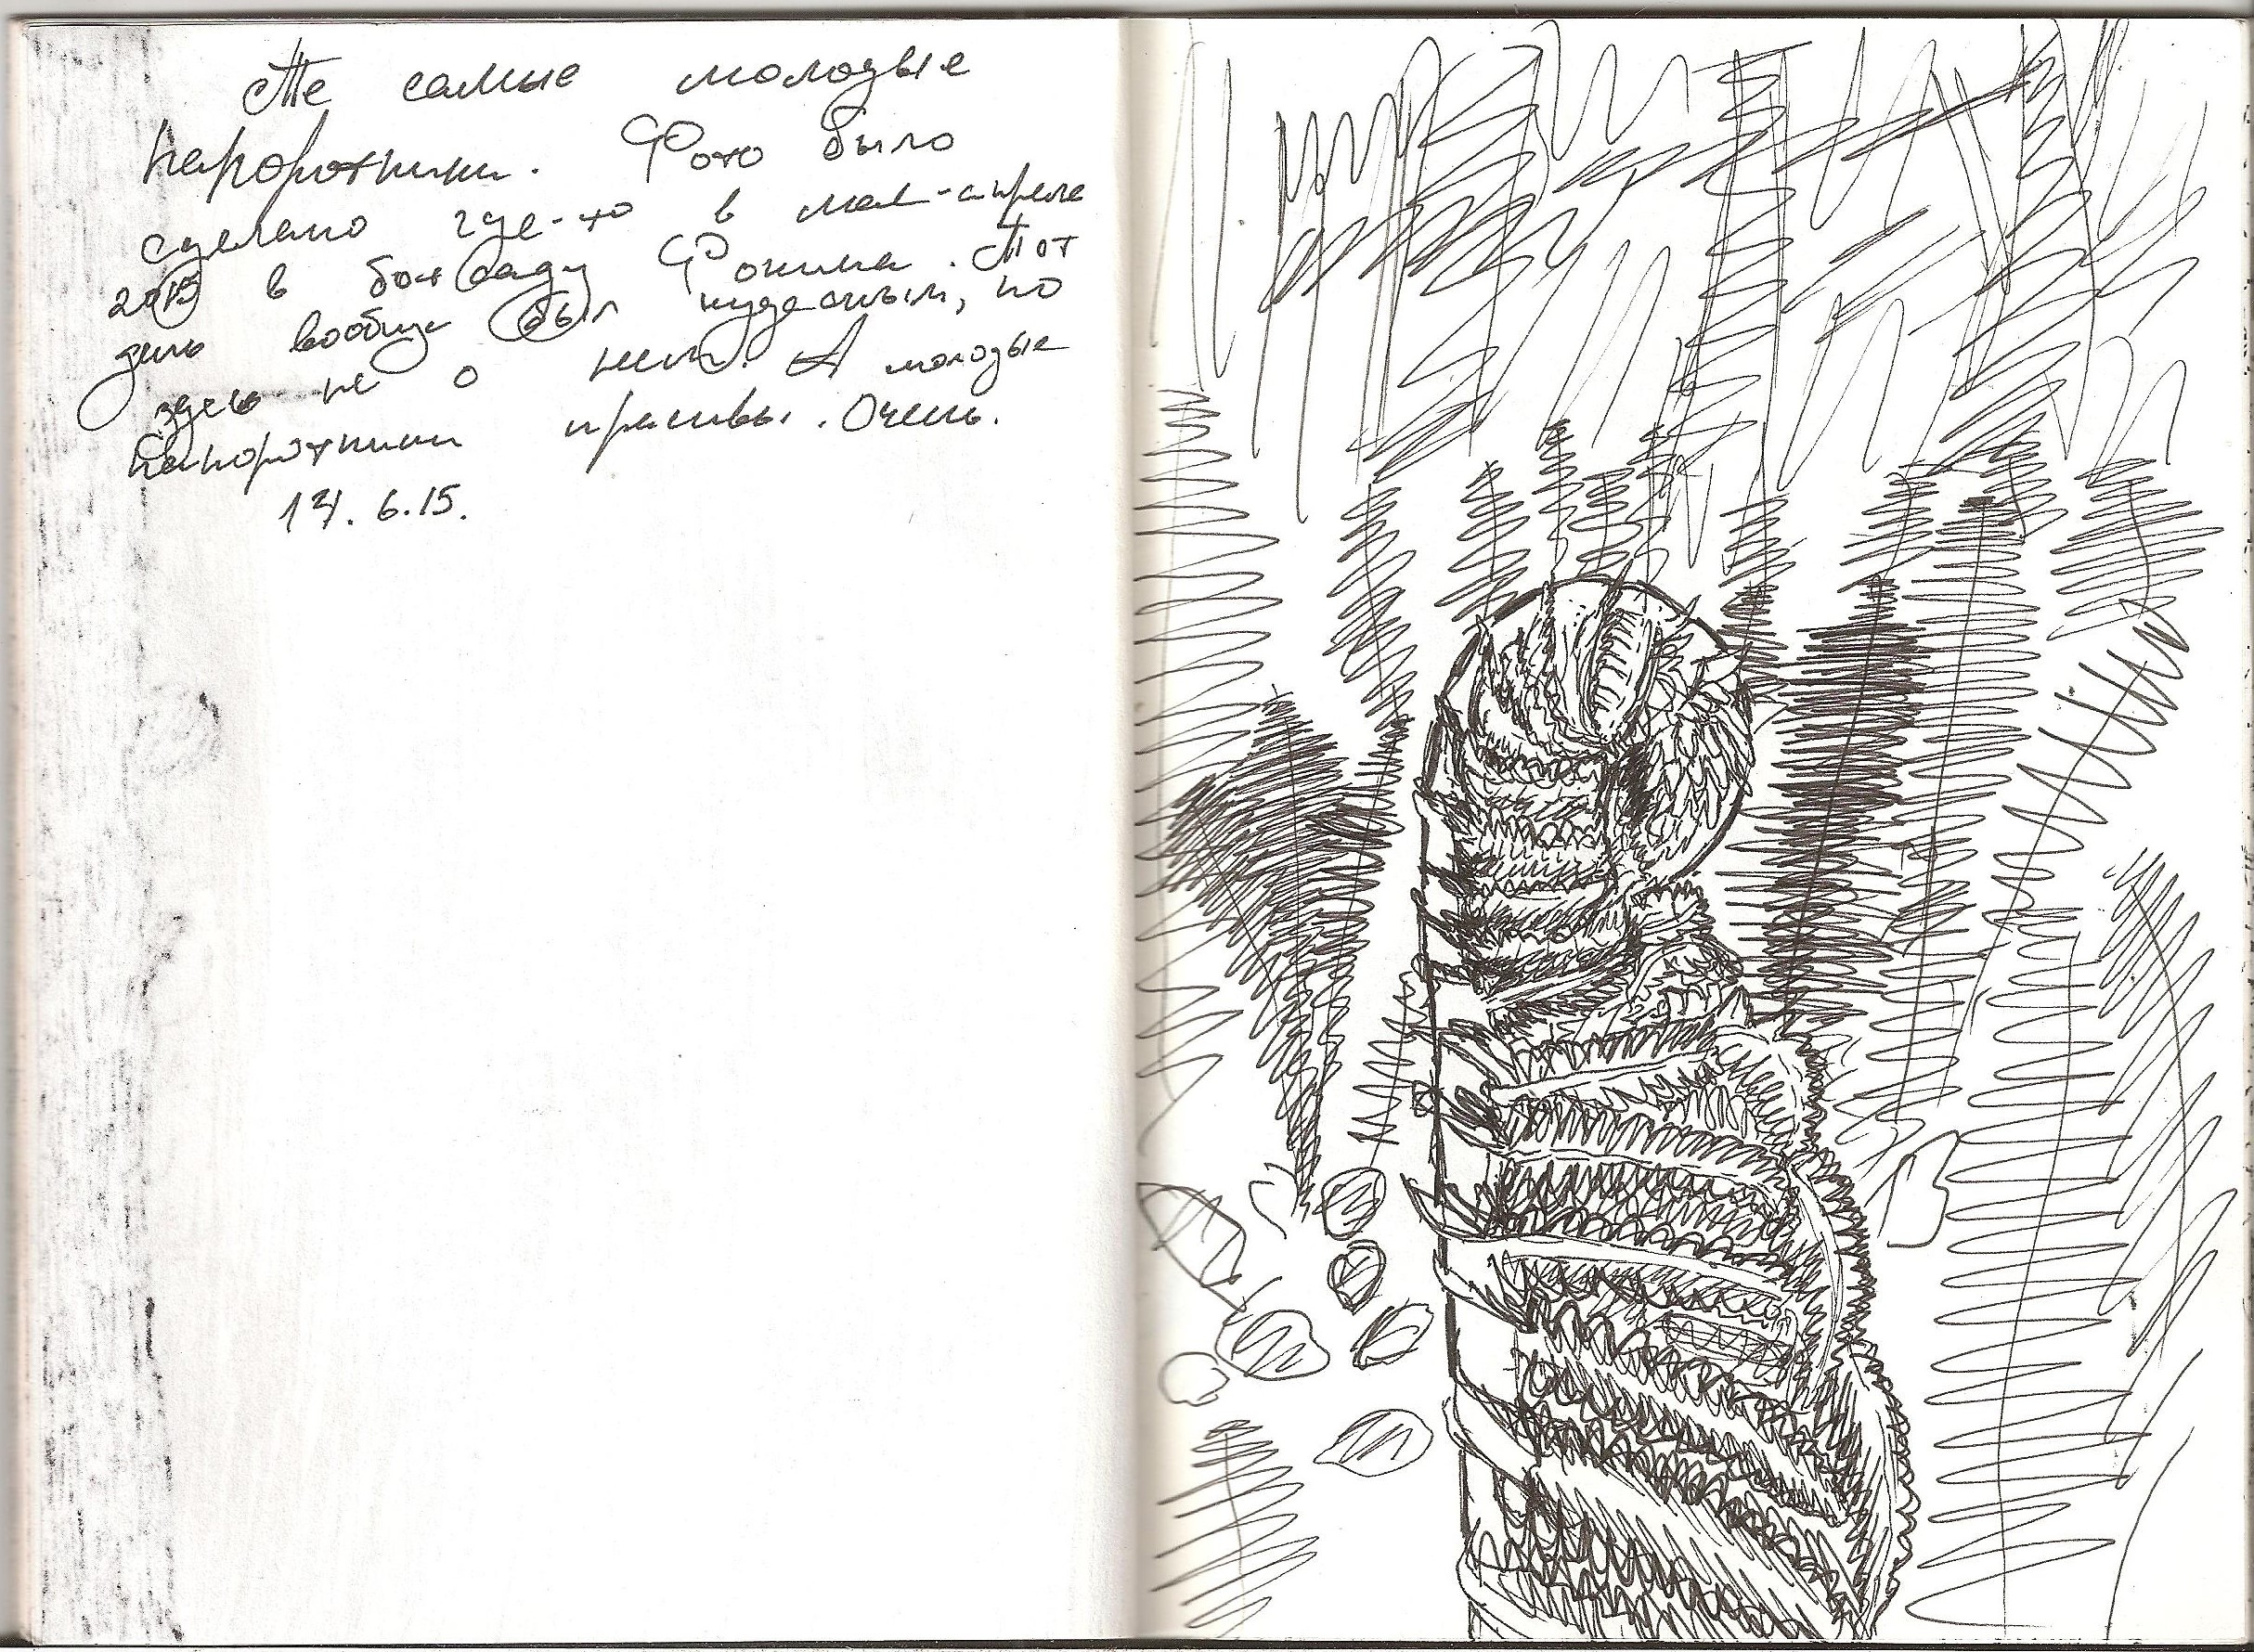 Те самые молодые
папоротники. Фото было
сделано где-то в мае-апреле
2015 в бот саду Фомина. Тот
день вообще был чудесным, но
здесь не о нем. А молодые
папоротники красивы. Очень.
14.6.15.